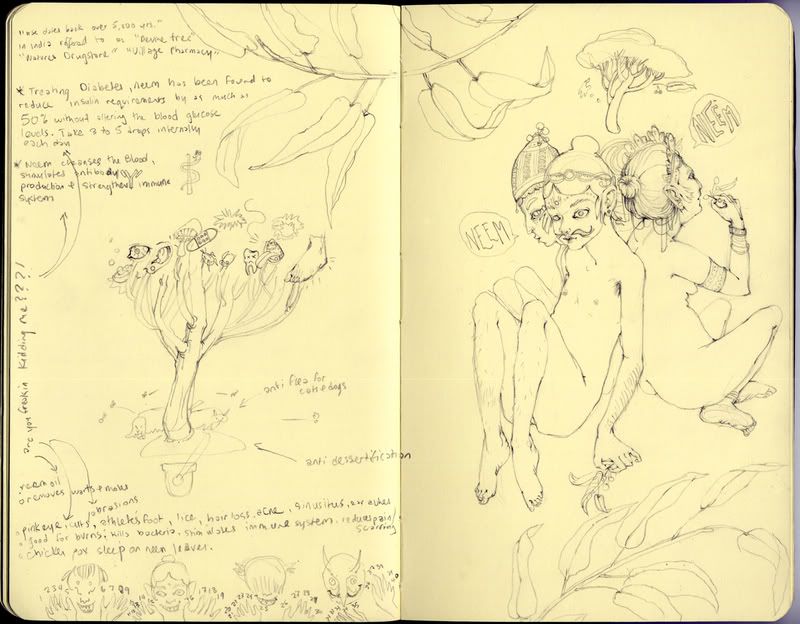 "use dates back over 5,000 yrs."
in India refered to as "Devine tree"
"Natures Drugstore" "Village Pharmacy"
* Treating Diabetes, neem has been found to
reduce insulin requirements by as much as
50% without altering the blood glucose
levels. Take 3 to 5 drops internally
each day
* Neem cleanses the blood,
stimulates antibody
production & strengthens immune
system
are you freakin kidding me????!
anti flea for
cats & dogs
anti dessertification
neem oil
removes warts & moles
abrasions
pink eye, cuts, athletes foot, lice, hair loss, acne, sinusitus, ear aches
good for burns, kills bacteria, stimulates immune system. reduces pain/
scarring
chicken pox sleep on neem leaves.
NEEM
NEEM